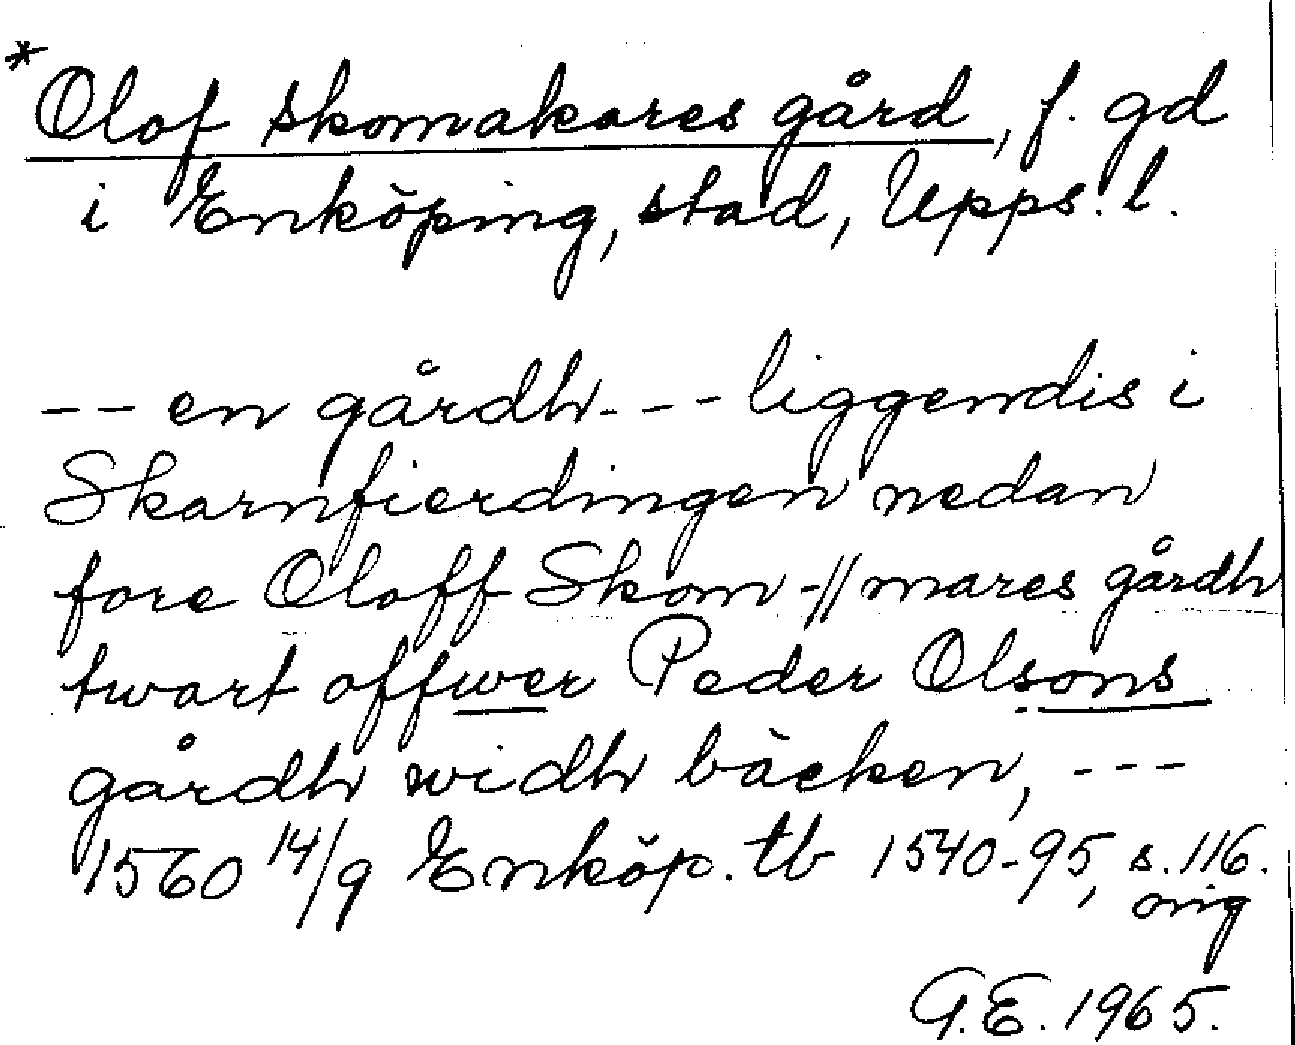 *Olof skomakares gård, f. gd
i Enköping, stad, Upps. l.
-- en gårdh --- liggendis i
Skarnfierdingen nedan
fore Oloff Skom-//mares gårdh
twart offwer Peder Olsons
gårdh widh bäcken, ---
1560 14/9 Enköp. tb 1540-95, s. 116.
orig
G.E. 1965.